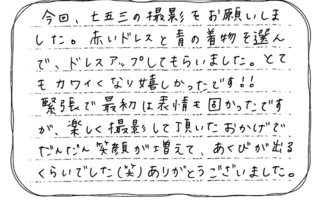 今回、七五三の撮影をお願いしま
した。赤いドレスと青の着物を選ん
で、ドレスアップしてもらいました。とて
もカワイくなり嬉しかったです!!
緊張で最初は表情も固かったです
が、楽しく撮影して頂いたおかげで
だんだん笑顔が増えて、あくびが出る
くらいでした(笑)ありがとうございました。